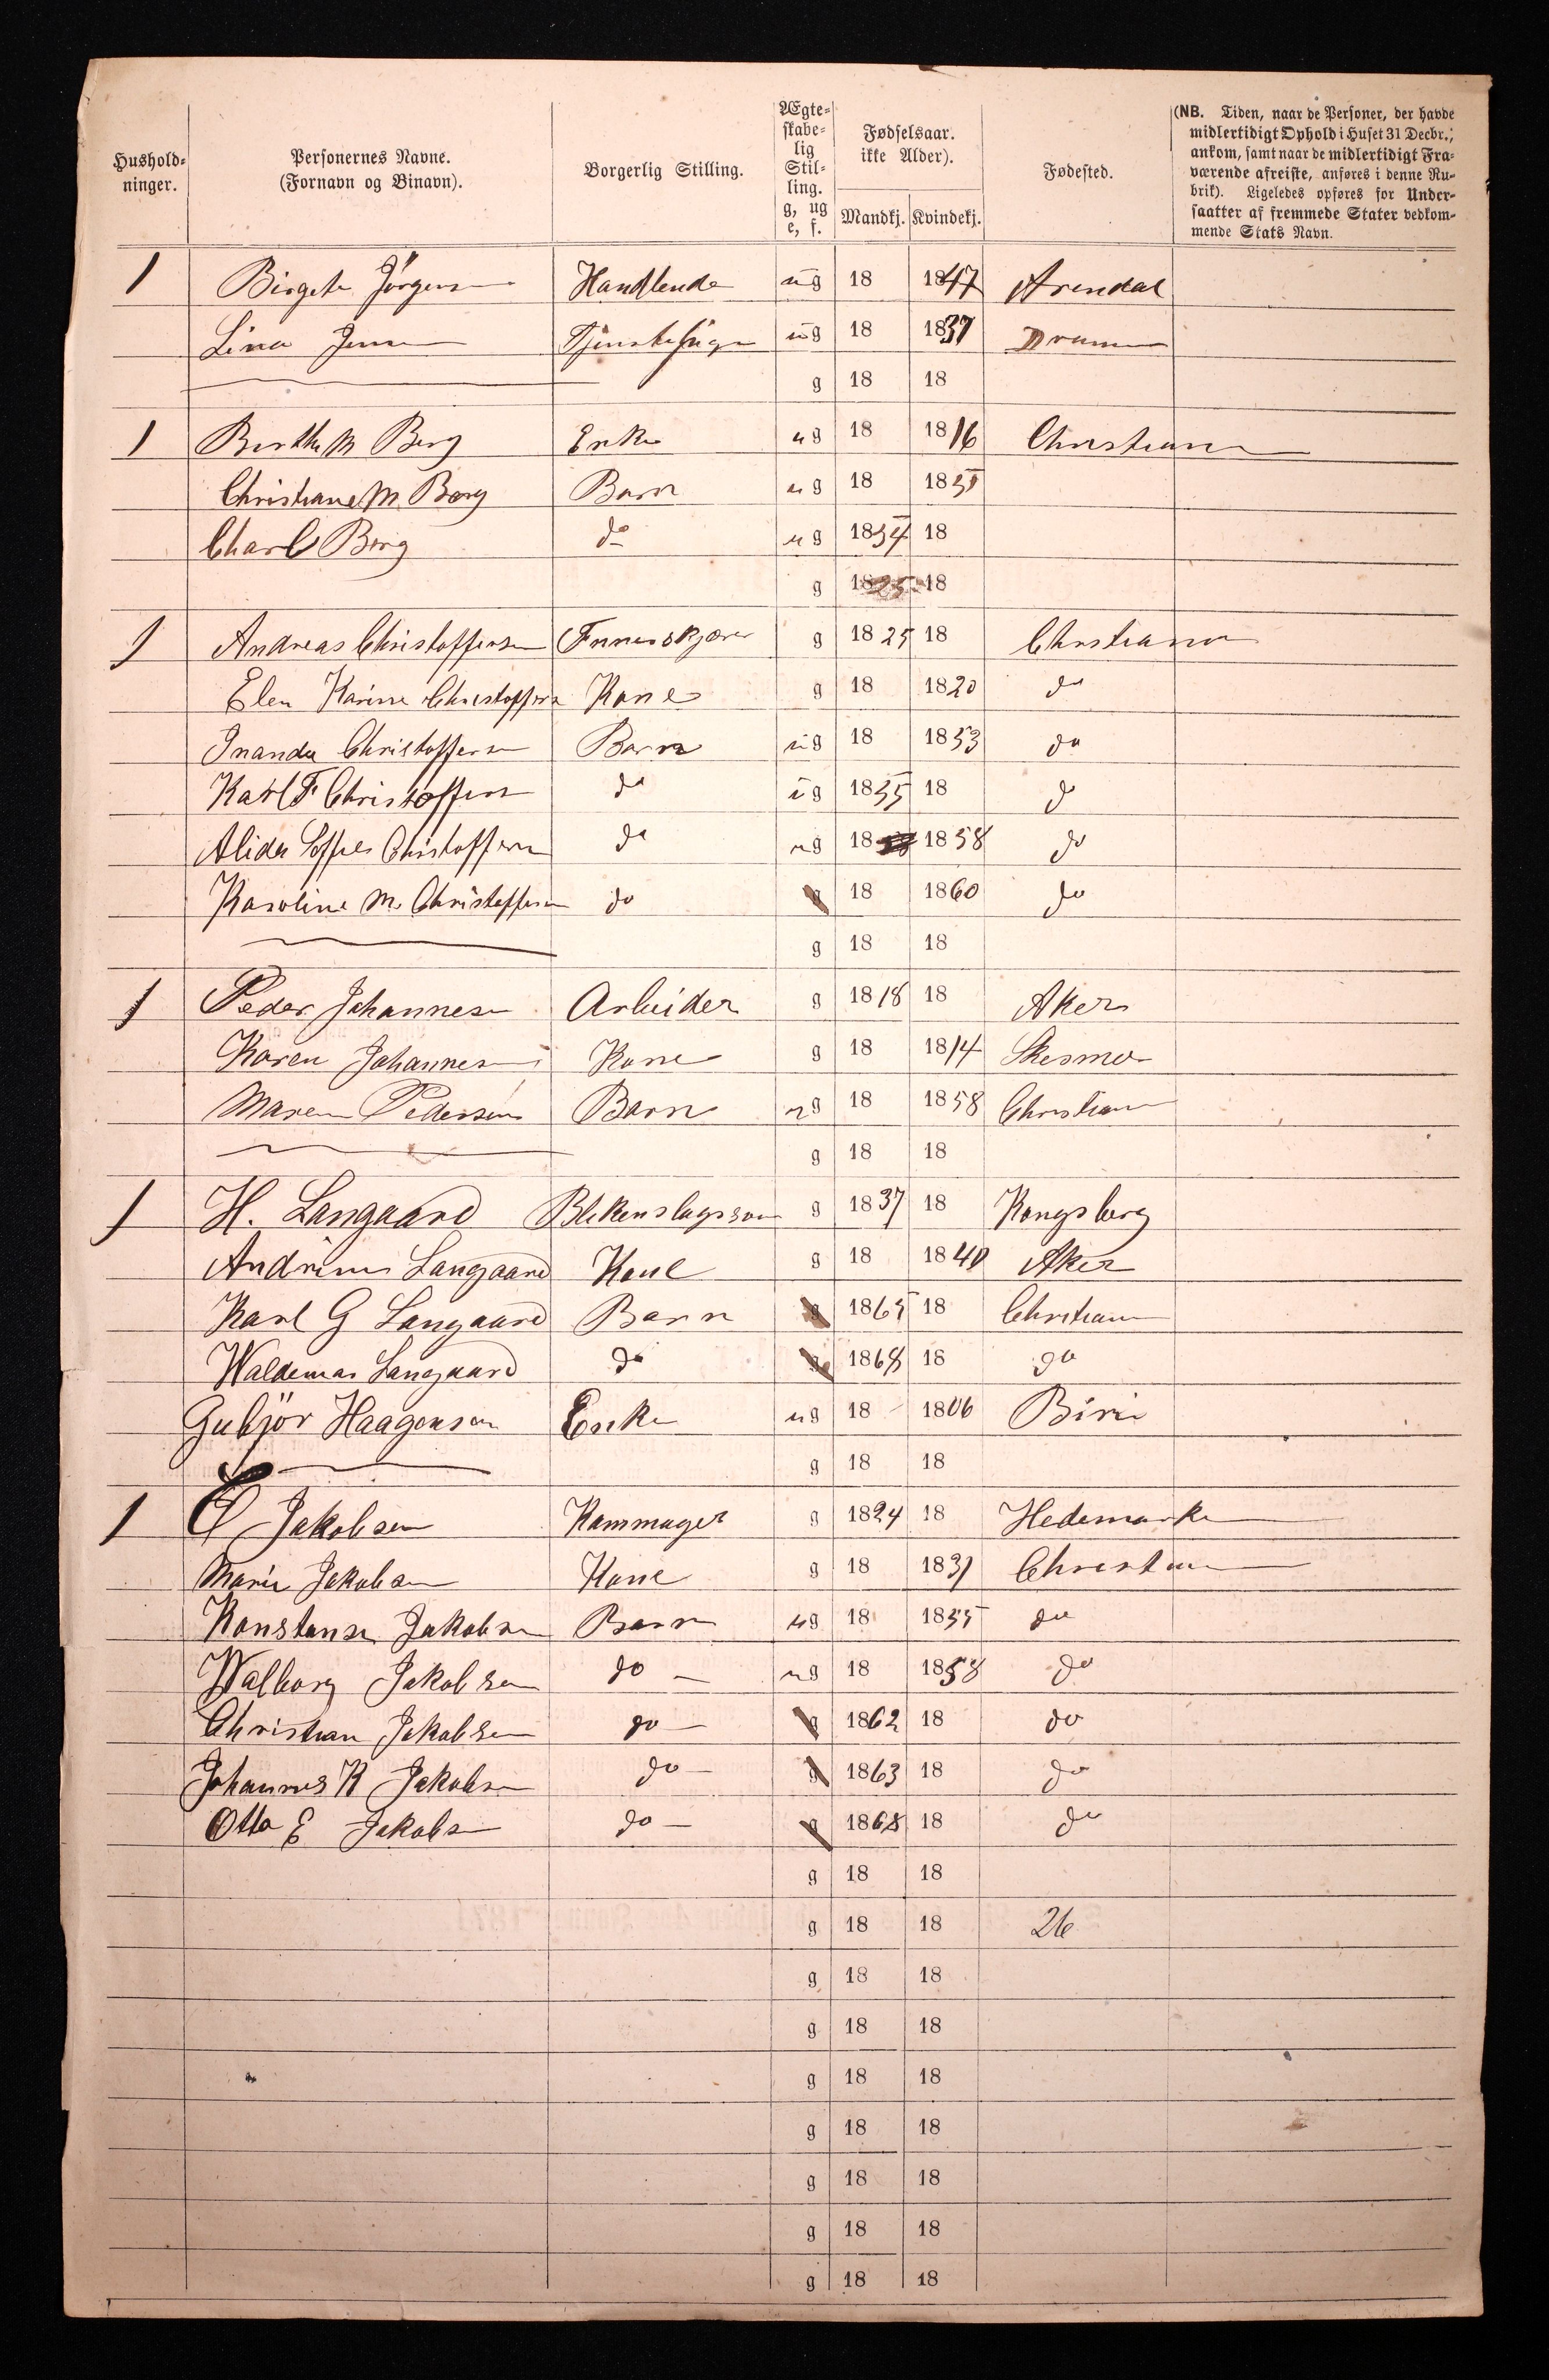 Hushold-
ninger.
Personernes Navne.
(Fornavn og Binavn).
Borgerlig Stilling.
Ægte-
skabe-
lig
Stil-
ling.
g, ug
e, f.
Fødselsaar.
ikke Alder).
Mandkj. Kvindekj.
Fødested.
(NB. Tiden, naar de Personer, der havde
midlertidigt Ophold i Huset 31 Decbr.,
ankom, samt naar de midlertidigt Fra-
værende afreiste, anføres i denne Ru-
brik). Ligeledes opføres for Under-
saatter af fremmede Stater vedkom-
mende Stats Navn.
1 Birgete Jörgensen Handlende ug 18 1847 Arendal
Lina Jensen Tjenestepige ug 18 1837 Drammen
g 18 18
1 Berthe M Berg Enke ug 18 1816 Christiania
Christiane M. Berg Barn ug 18 18
Charl Berg do ug 1854 18
g 1825 18
1 Andreas Christoffersen g 1825 18 Christiania
Elen Karine Christoffers Kone g 18 1820 do
Inanda Christoffersen Barn ug 18 1853 do
Karl F Christoffersen do ug 1855 18 do
Alida Christoffersen do ug 18 1858 do
Karoline M. Christoffersen do g 18 1860 do
g 18 18
1 Peder Johannesen Arbeider g 1818 18 Aker
Karen Johannesen Kone g 18 1814 Skesmo
Maren Pedersen Barn ug 18 1858 Christiania
g 18 18
1 H. Langaard Blikenslagersven g 1837 18 Kongsberg
Andrine Langaard Kone g 18 1840 Aker
Karl G Langaard Barn g 1865 18 Christiania
Waldemar Langaard do g 1868 18 do
Gubjör Haagensen Enke ug 18 1806 Biri
g 18 18
1 Jakobsen Kammager g 1824 18 Hedemarken
Marie Jakobsen Kone g 18 1831 Christiania
Konstanse Jakobsen Barn ug 18 1855 do
Walborg Jakobsen do - ug 18 1858 do
Christian Jakobsen do - g 1862 18 do
Johannes K Jakobsen do - g 1863 18 do
Otto E Jakobsen do - g 1868 18 do
g 18 18
g 18 18 26
g 18 18
g 18 18
g 18 18
g 18 18
g 18 18
g 18 18
g 18 18